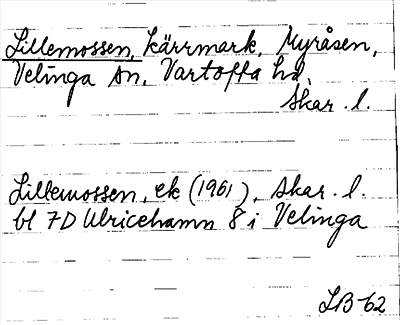 Lillemossen, kärrmark, Myråsen,
Velinga sn, Vartofta hd,
Skar. l.
Lillemossen, ek (1961), Skar. l.
bl 7D Ulricehamn 8 i Velinga
LB-62